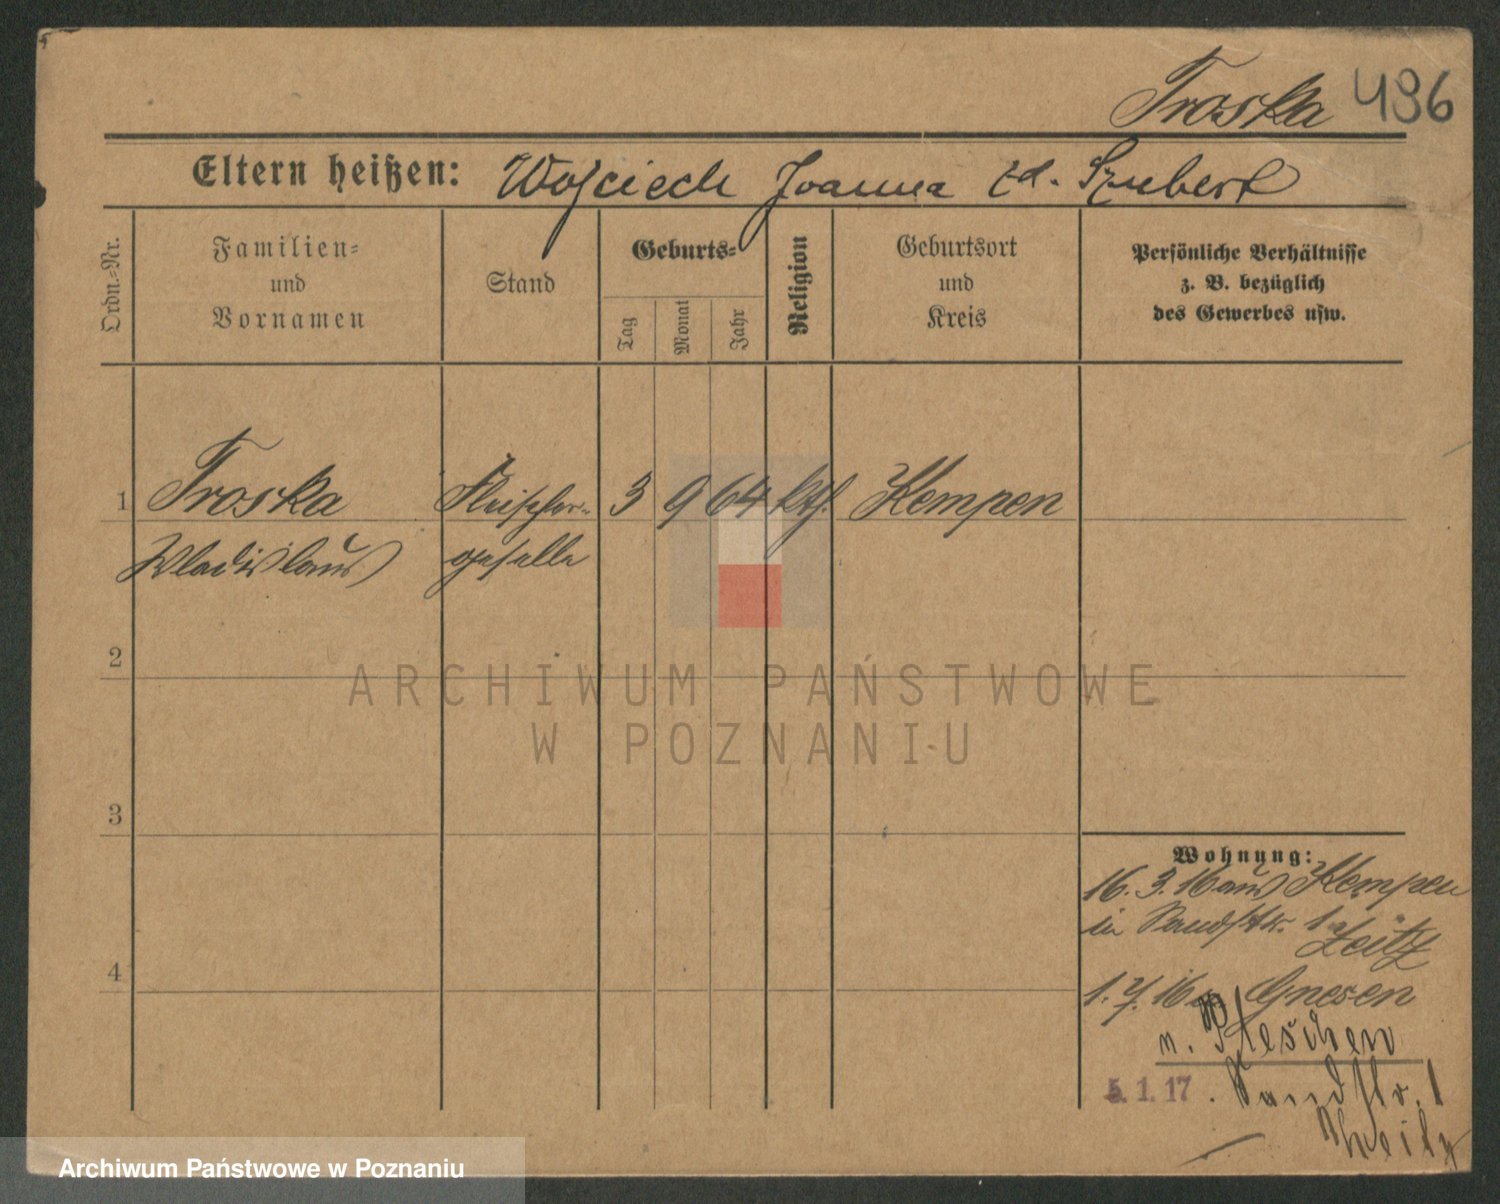 Troska 496
Eltern heißen: Wojciech Joanna zd. Szubert
Ordn.=Nr.
Familien=
und
Vornamen
Stand
Geburts=
Tag
Monat
Jahr
Religion
Geburtsort
und
Kreis
Persönliche Verhältnisse
z. B. bezüglich
des Gewerbes usw.
1 Troska Fleischer- 3 9 64 kth. Kempen
Wladislaus geselle
2
3
4
Wohnung:
16. 3. 16 aus Kempen
in Sandstr. 1a
Zeitz
1. 7. 16 n. Gnesen
n. Pleschen
5. 1. 17. Sandstr. 1
ARCHIWUM PAŃSTWOWE
W POZNANIU
Archiwum Państwowe w Poznaniu